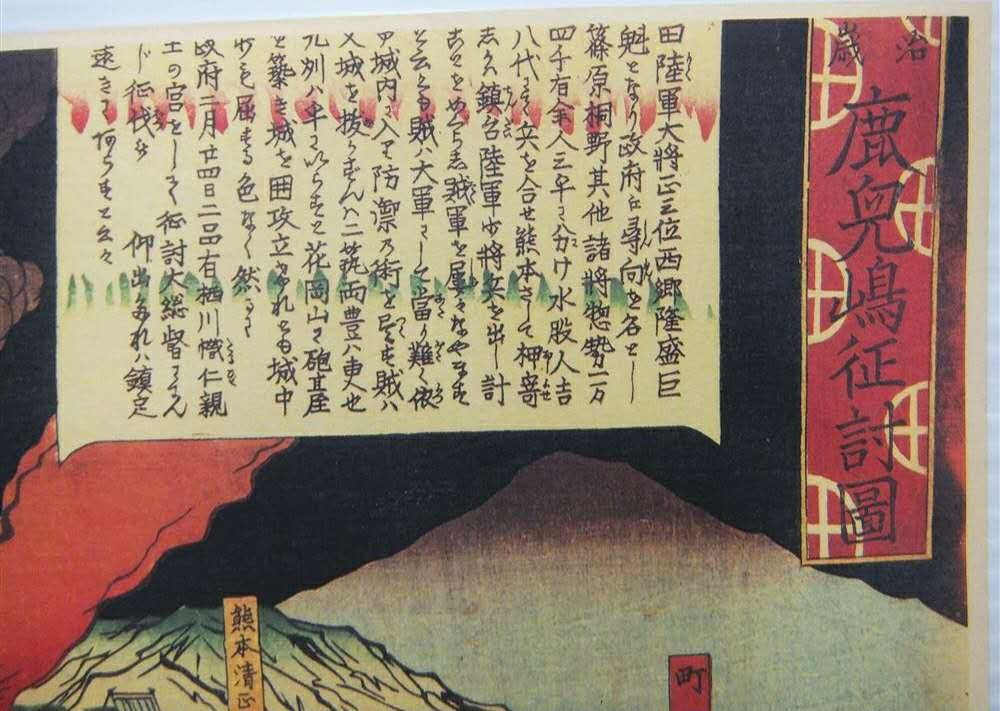 治
歳
鹿兒嶋征討圖
田陸軍大將正三位西郷隆盛巨
魁となり政府に尋向を名とし
篠原桐野其他諸將惣勢二万
四千有余人三手にわけ水股人吉
八代にて兵を合せ熊本さして押寄
鎮台陸軍少將兵を出し計
賊軍を屡々なやます
と云とも賊ハ大軍にして當り難く依
城内に入り防禦乃術を尽す賊ハ
城を抜かずんハ二筑両豊ハ東人也
九州ハ手にいらずと花岡山に砲臺
を築き城を囲攻立かれとも城中
少も屈する色なく然るに
政府二月廿四日二品有栖川熾仁親
王の宮をして征討大総督に
征伐 仰出されハ鎮定
遠きに阿らすと云々
熊本清正
町